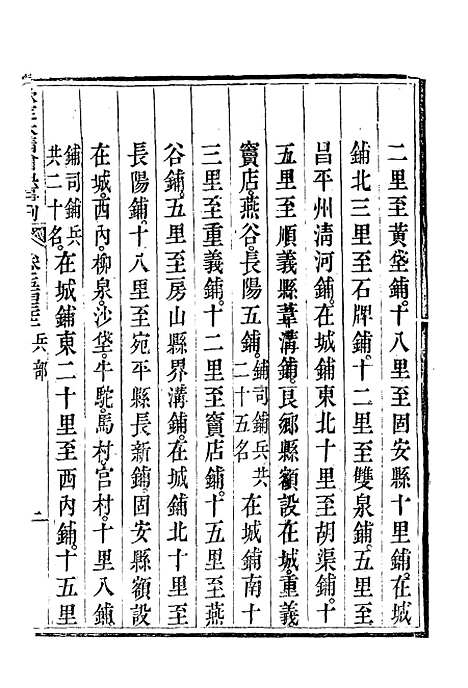 二里至黃垡鋪。十八里至固安縣十里鋪。在城
鋪北三里至石牌鋪。十二里至雙泉鋪。五里至
昌平州清河鋪。在城鋪東北十里至胡渠鋪。十
五里至順義縣葦溝鋪。良鄉縣額設在城。重義
竇店。燕谷。長陽五鋪。鋪司鋪兵共二十五名在城鋪南十
三里至重義鋪。十二里至竇店鋪。十二里至燕
谷鋪。五里至房山縣界溝鋪。在城鋪北十里至
長陽鋪。十八里至宛平縣長新鋪。固安縣額設
在城。西內。柳泉。沙垡。牛駝。馬村。官村。十里八鋪
鋪司鋪兵共二十名。在城鋪東二十里至西內鋪。十五里
兵部 二